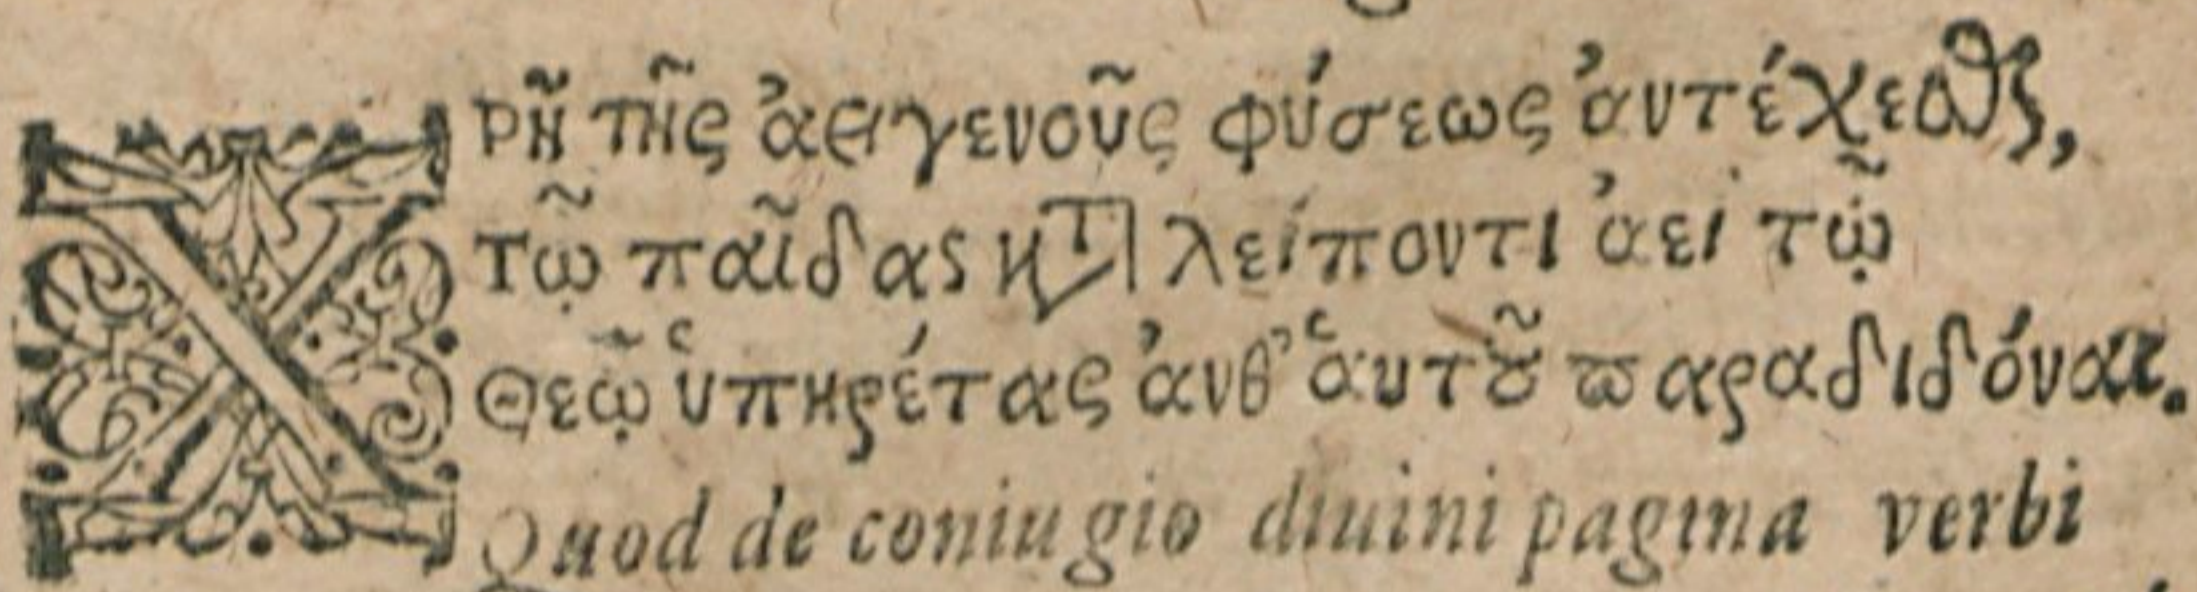 Χρὴ τῆς ἀειγενοῦς φύσεως ἀντέχεσθαι,
τῷ παῖδας καταλείποντι ἀεὶ τῷ
Θεῷ ὑπηρέτας ἀνθ’ αὑτοῦ παραδιδόναι.
Quod de coniugio diuini pagina verbi